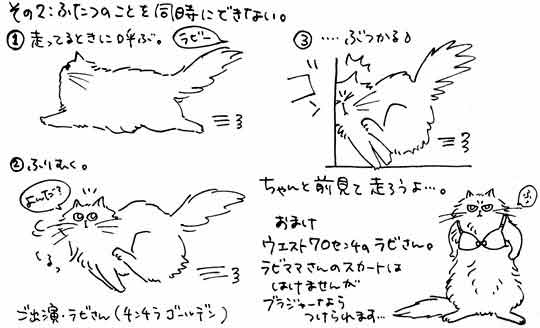 その2：ふたつのことを同時にできない。
① 走ってるときに呼ぶ。
ラビー
② ふりむく。
よんだ？
くるっ
③ ‥‥ぶつかる。
ちゃんと前見て走ろうよ…。
おまけ
ウエスト70センチのラビさん。
ラビママさんのスカートは
はけませんが
ブラジャーなら
つけられます…
ご出演・ラビさん（チンチラゴールデン）